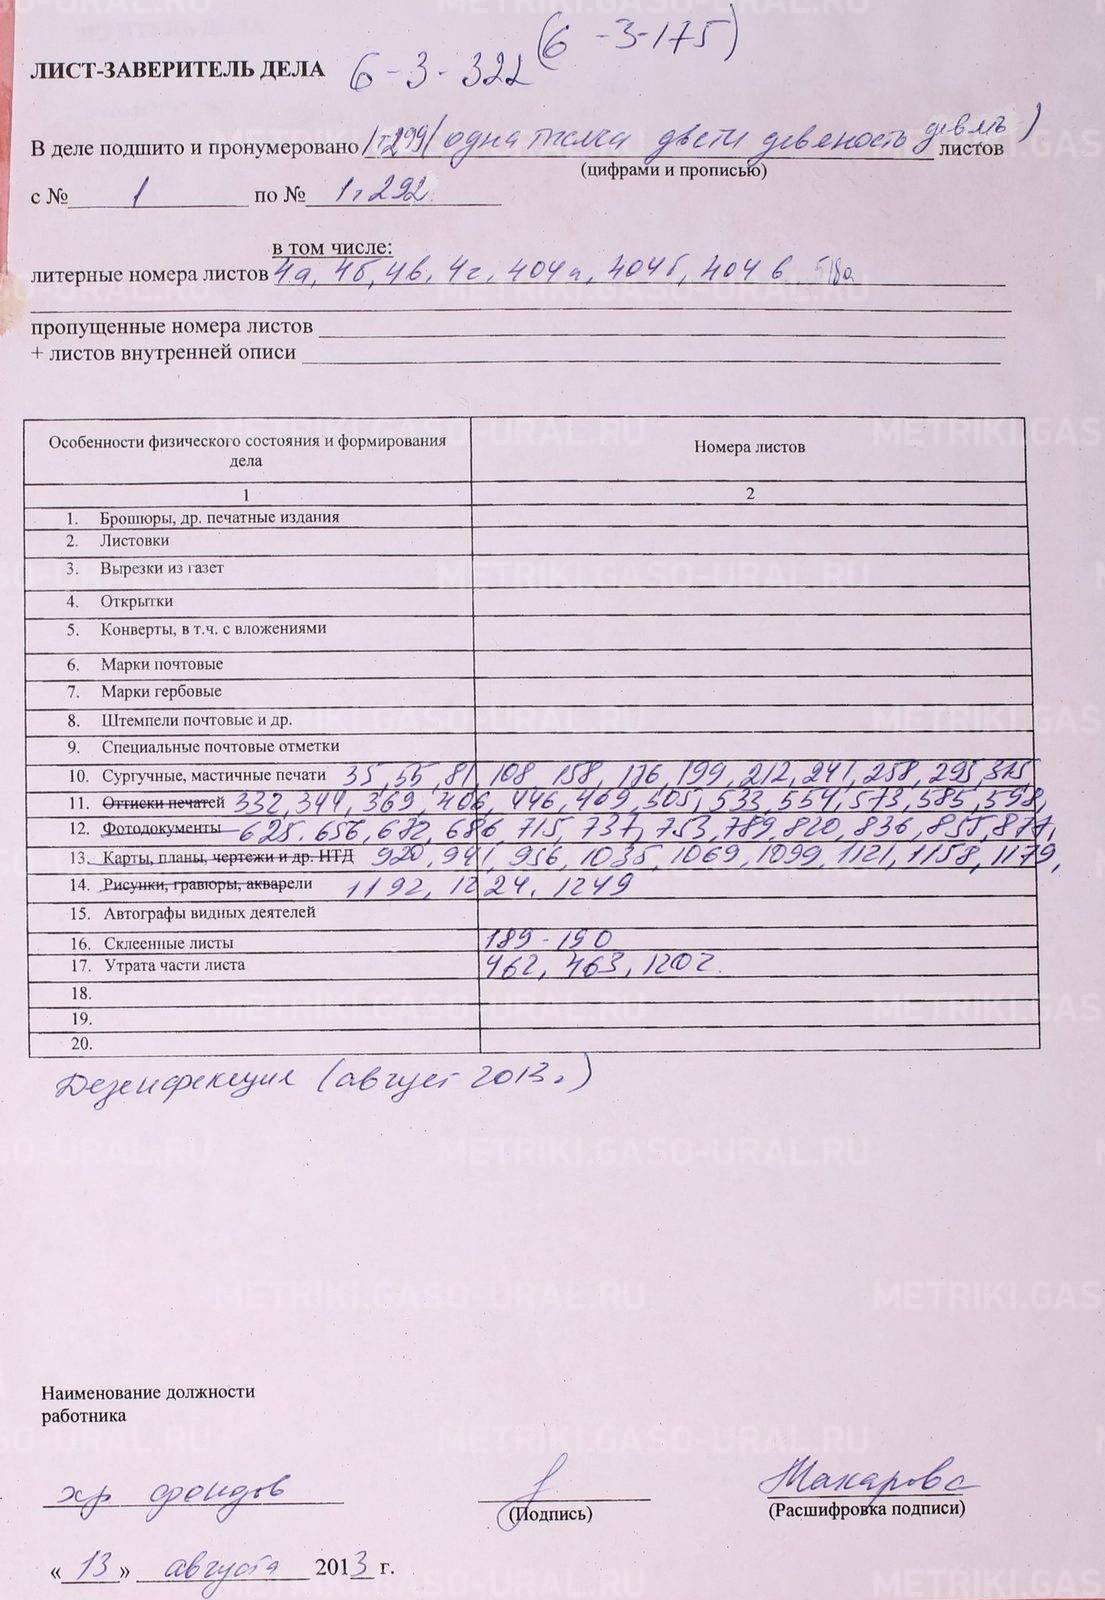 (6-3-175)
ЛИСТ-ЗАВЕРИТЕЛЬ ДЕЛА 6-3-322
В деле подшито и пронумеровано /1299/ (одна тысяча двести девяность девять) листов
(цифрами и прописью)
с № 1 по № 1292
в том числе:
литерные номера листов 4а, 4б, 4в, 4г, 404а, 404б, 404в, 518а
пропущенные номера листов
+ листов внутренней описи
Особенности физического состояния и формирования дела Номера листов
1 2
1. Брошюры, др. печатные издания
2. Листовки
3. Вырезки из газет
4. Открытки
5. Конверты, в т.ч. с вложениями
6. Марки почтовые
7. Марки гербовые
8. Штемпели почтовые и др.
9. Специальные почтовые отметки
10. Сургучные, мастичные печати 35, 55, 81, 108, 158, 176, 199, 212, 241, 258, 295, 315,
11. Оттиски печатей 332, 344, 369, 406, 446, 469, 505, 533, 554, 573, 585, 598,
12. Фотодокументы 625, 656, 672, 686, 715, 737, 753, 789, 820, 836, 855, 877,
13. Карты, планы, чертежи и др. НТД 920, 941, 956, 1035, 1069, 1099, 1121, 1158, 1179,
14. Рисунки, гравюры, акварели 1192, 1224, 1249
15. Автографы видных деятелей
16. Склеенные листы 189-190
17. Утрата части листа 462, 463, 1202.
18.
19.
20.
Дезинфекция (август 2013г.)
Наименование должности
работника
хр фондов Макарова
(Подпись) (Расшифровка подписи)
«13» августа 2013 г.
METRIKI.GASO-URAL.RU